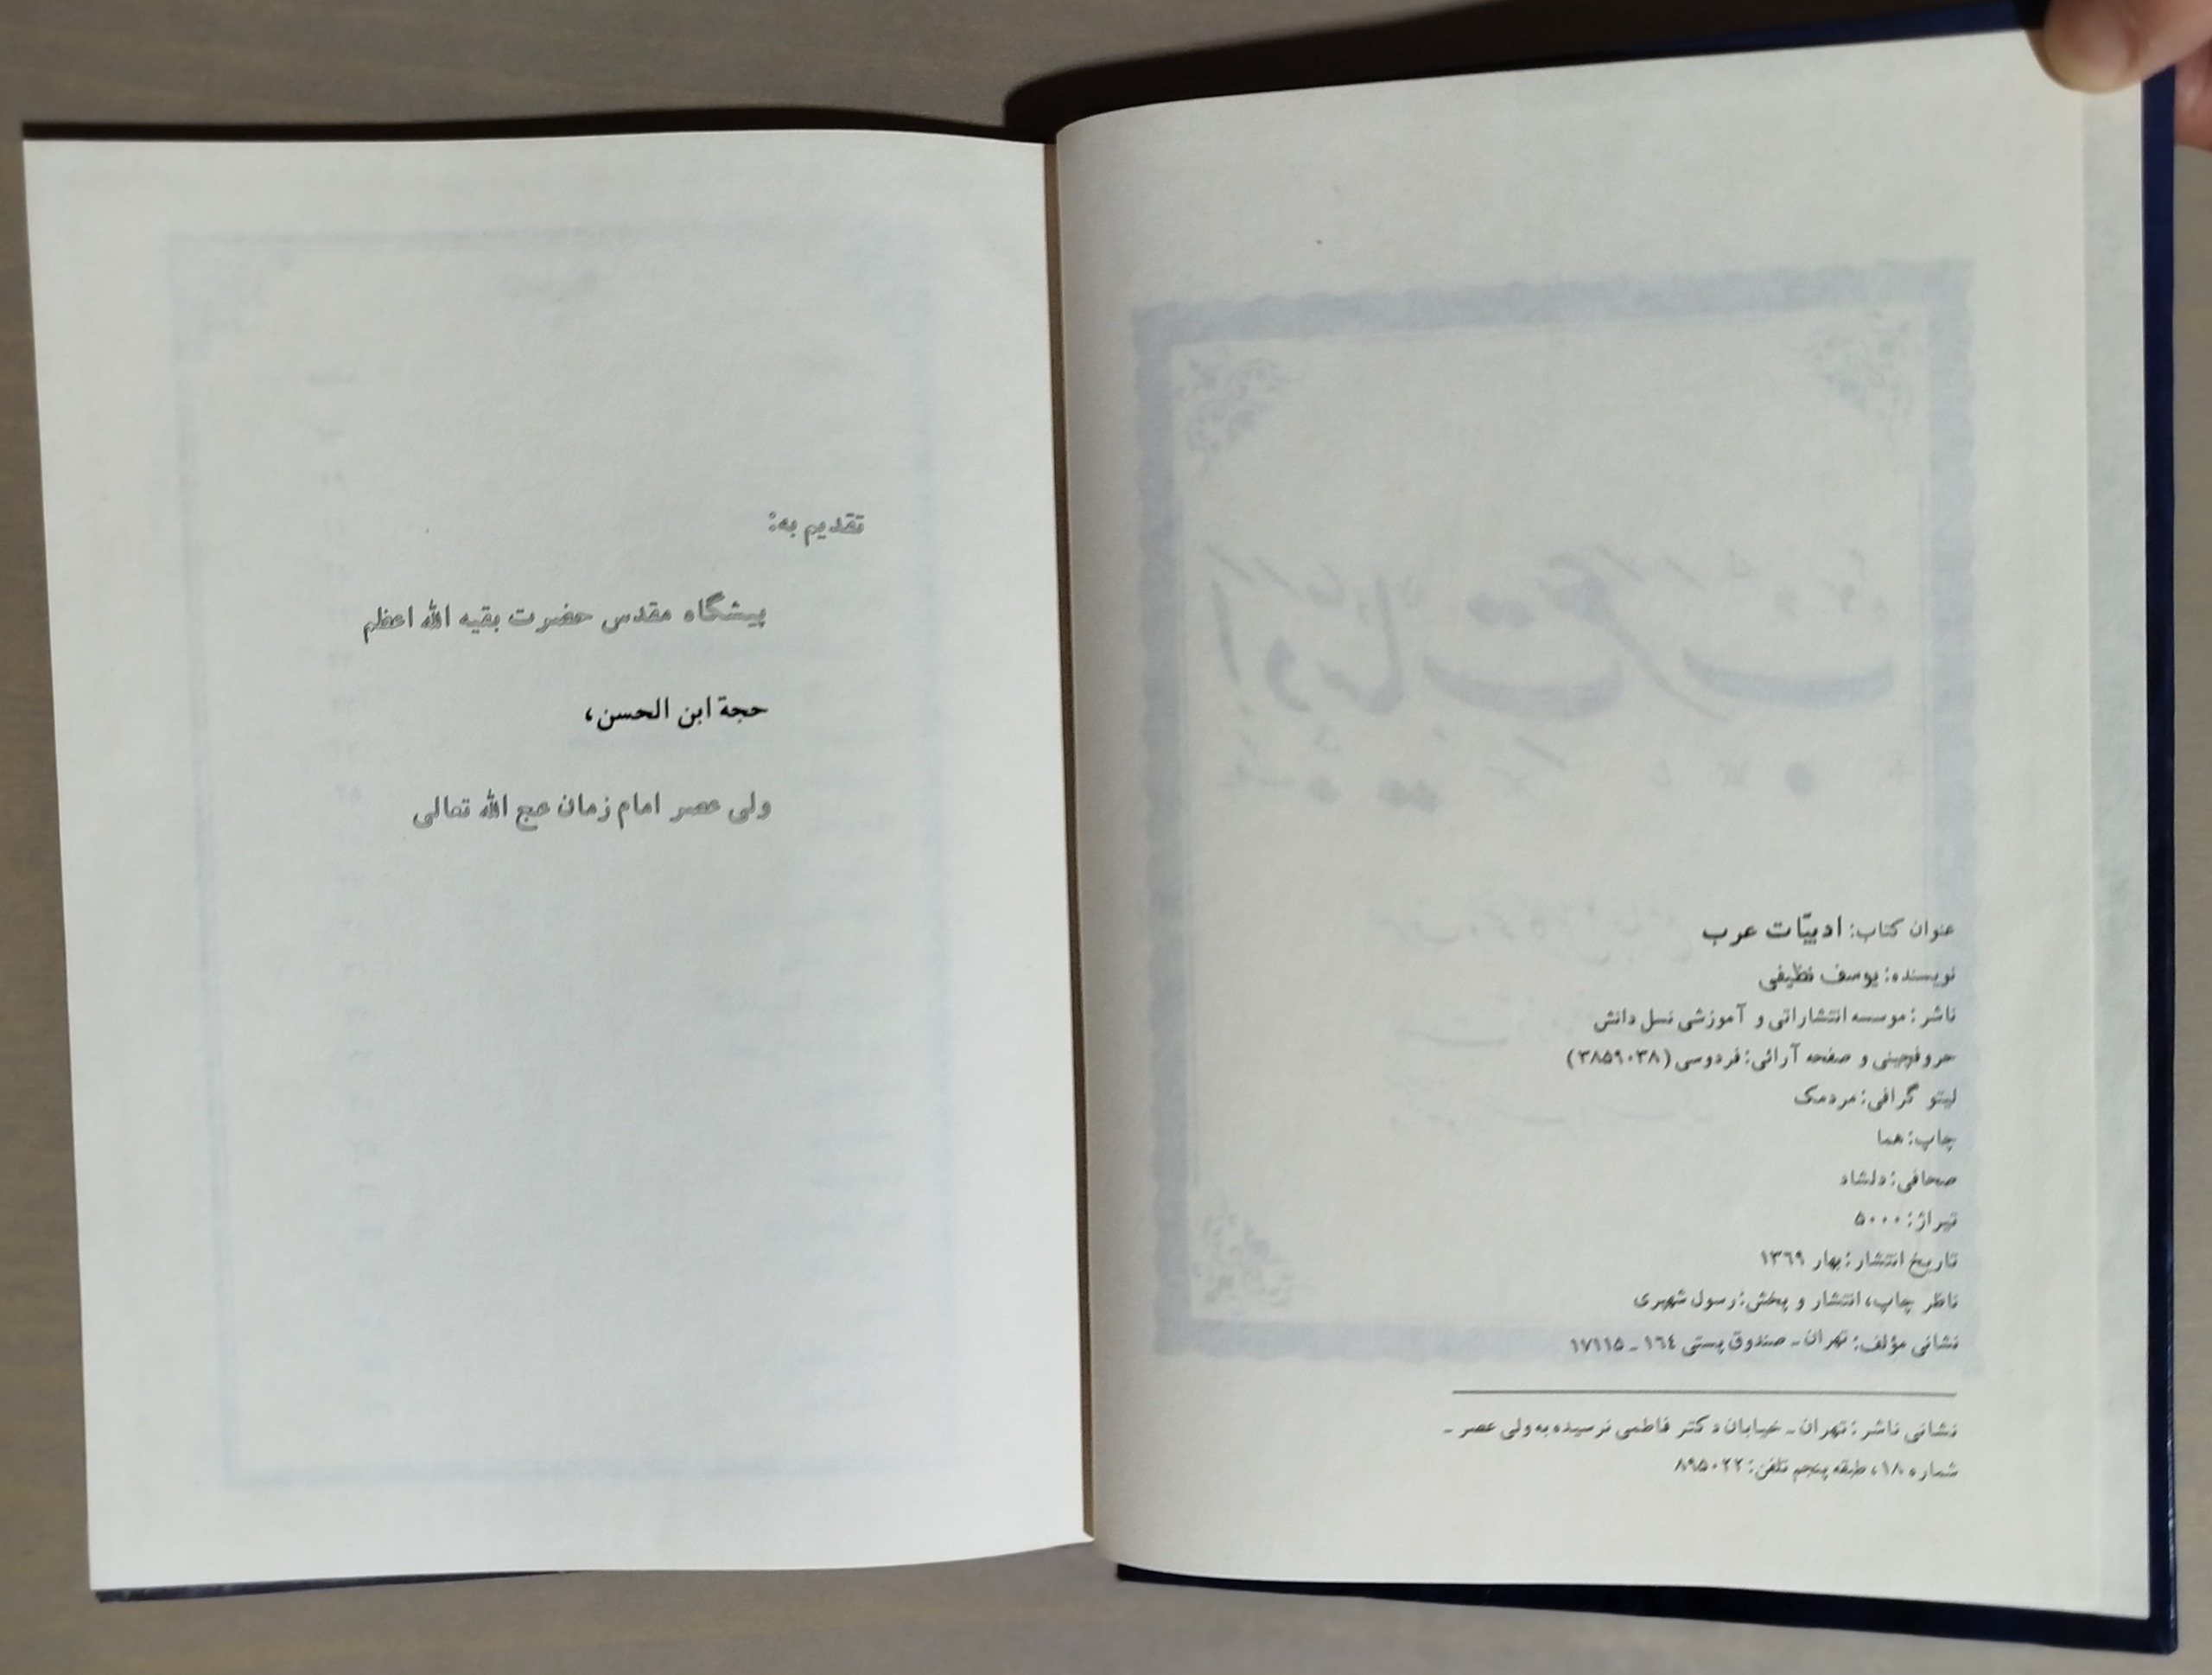 عنوان کتاب: ادبیّات عرب
نویسنده: یوسف نظیفی
ناشر: موسسه انتشاراتی و آموزشی نسل دانش
حروفچینی و صفحه آرائی: فردوسی (۳۸۵۹۰۳۸)
لیتو گرافی: مردمک
چاپ: هما
صحافی: دلشاد
تیراژ: ۵۰۰۰
تاریخ انتشار: بهار ۱۳۶۹
ناظر چاپ، انتشار و پخش: رسول شهیری
نشانی مؤلف: تهران ـ صندوق پستی ۱۶۴ ـ ۱۷۱۱۵
نشانی ناشر: تهران ـ خیابان دکتر فاطمی نرسیده به ولی عصر ـ
شماره ۱۸، طبقه پنجم تلفن: ۸۹۵۰۲۲
تقدیم به:
پیشگاه مقدس حضرت بقیه الله اعظم
حجة ابن الحسن،
ولی عصر امام زمان عج الله تعالی